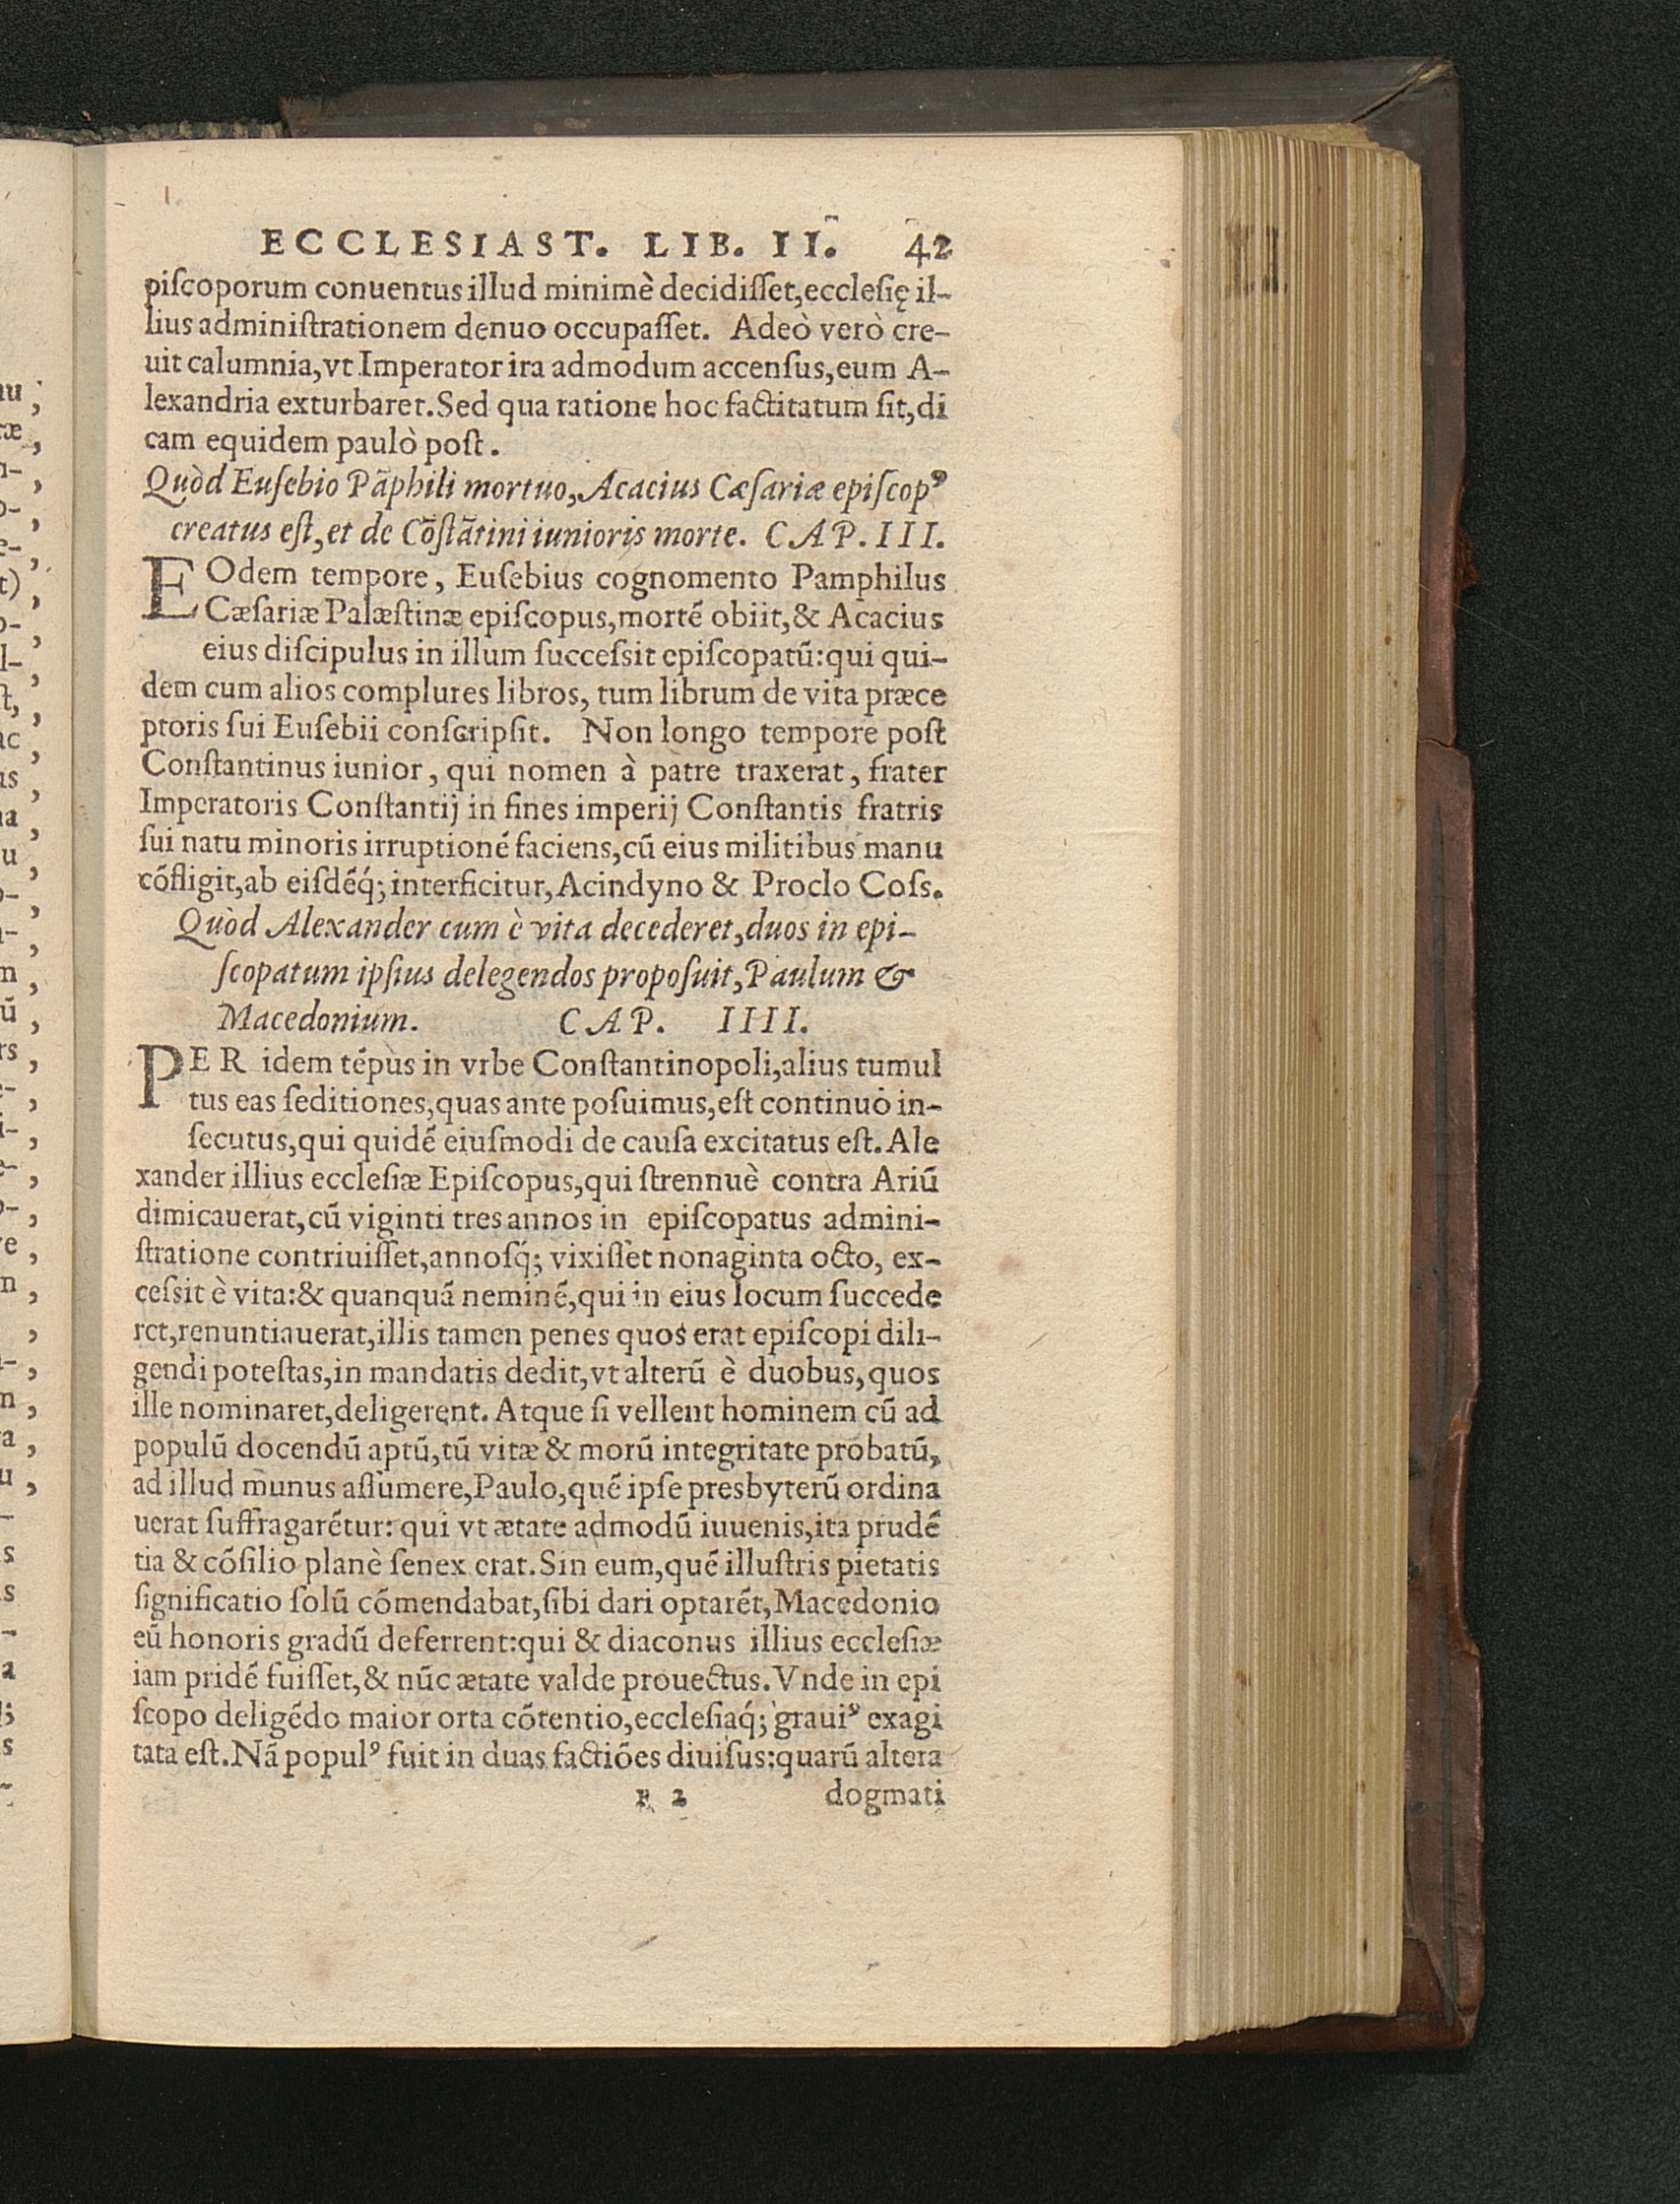 ECCLESIAST. LIB. II. 42
piſcoporum conuentus illud minimè decidiſſet,ecclesię il-
lius adminiſtrationem denuo occupaſſet. Adeò verò cre-
uit calumnia,vt Imperator ira admodum accenſus,eum A-
lexandria exturbaret.Sed qua ratione hoc factitatum ſit,di
cam equidem paulò poſt.
Quòd Euſebio Pāphili mortuo,Acacius Cæſariæ epiſcopꝰ
creatus eſt,et de Cōſtātini iunioris morte. CAP.III.
EOdem tempore, Euſebius cognomento Pamphilus
Cæſariæ Palæſtinæ epiſcopus,mortē obiit,& Acacius
eius diſcipulus in illum ſucceſsit epiſcopatū:qui qui-
dem cum alios complures libros, tum librum de vita præce
ptoris ſui Euſebii conſcripſit. Non longo tempore poſt
Conſtantinus iunior, qui nomen à patre traxerat, frater
Imperatoris Conſtantij in fines imperij Conſtantis fratris
ſui natu minoris irruptionē faciens,cū eius militibus manu
cōfligit,ab eiſdēq́; interficitur,Acindyno & Proclo Coſs.
Quòd Alexander cum è vita decederet,duos in epi-
ſcopatum ipſius delegendos propoſuit,Paulum &
Macedonium. CAP. IIII.
PER idem tēpus in vrbe Conſtantinopoli,alius tumul
tus eas ſeditiones,quas ante poſuimus,eſt continuò in-
ſecutus,qui quidē eiuſmodi de cauſa excitatus eſt.Ale
xander illius eccleſiæ Epiſcopus,qui ſtrennuè contra Ariū
dimicauerat,cū viginti tres annos in epiſcopatus admini-
ſtratione contriuiſſet,annoſq́; vixiſſet nonaginta octo, ex-
ceſsit è vita:& quanquā neminē,qui in eius locum ſuccede
ret,renuntiauerat,illis tamen penes quos erat epiſcopi dili-
gendi poteſtas,in mandatis dedit,vt alterū è duobus,quos
ille nominaret,deligerent. Atque ſi vellent hominem cū ad
populū docendū aptū,tū vitæ & morū integritate probatū,
ad illud munus aſſumere,Paulo,quē ipſe presbyterū ordina
uerat ſuffragarētur: qui vt ætate admodū iuuenis,ita prudē
tia & cōſilio planè ſenex erat.Sin eum,quē illuſtris pietatis
ſignificatio ſolū cōmendabat,ſibi dari optarēt,Macedonio
eū honoris gradū deferrent:qui & diaconus illius eccleſiæ
iam pridē fuiſſet,& nūc ætate valde prouectus.Vnde in epi
ſcopo deligēdo maior orta cōtentio,eccleſiaq́; grauiꝰ exagi
tata eſt.Nā populꝰ fuit in duas factiōes diuiſus:quarū altera
F 2 dogmati